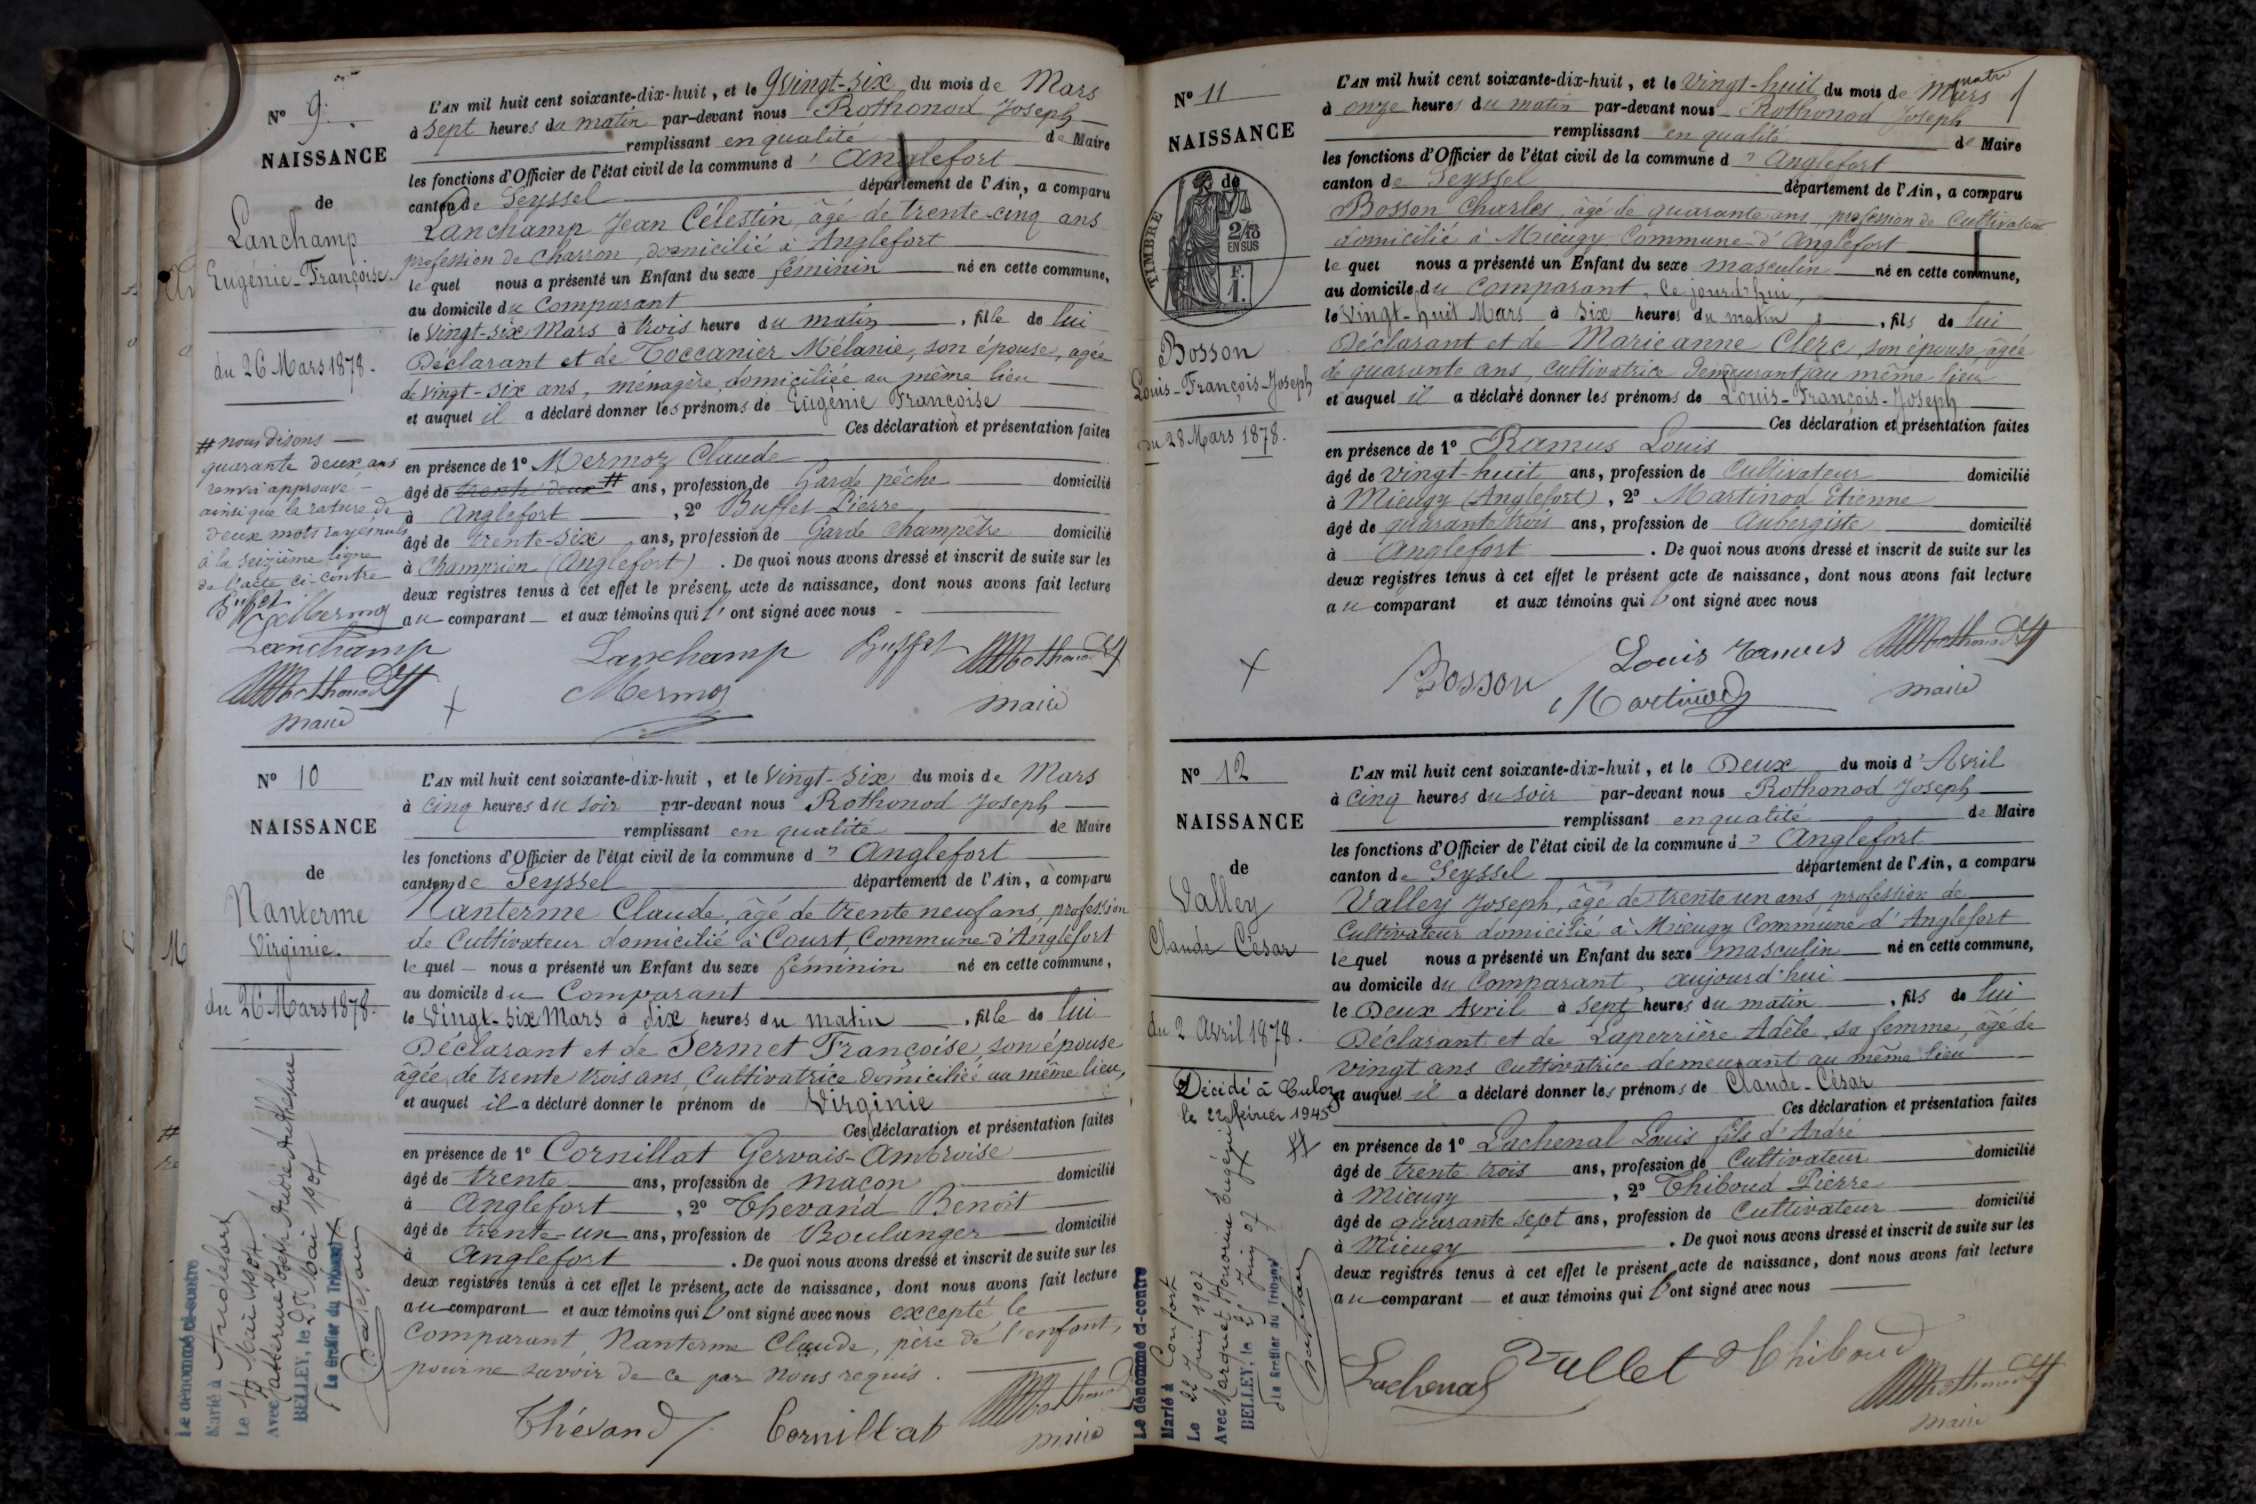 N° 9.
NAISSANCE
de
Lanchamp
Eugénie-Françoise.
du 26 Mars 1878.
# nous disons
quarante deux ans
renvoi approuvé
ainsi que la rature de
deux mots rayés nuls
à la seizième ligne
de l'acte ci-contre
Buffet
Mermoz
Lanchamp
Rothonod
maire
L'AN mil huit cent soixante-dix-huit, et le vingt-six du mois de Mars
à sept heures du matin par-devant nous Rothonod Joseph
remplissant en qualité de Maire
les fonctions d'Officier de l'état civil de la commune d'Anglefort
canton de Seyssel département de l'Ain, a comparu
Lanchamp Jean Célestin, âgé de trente-cinq ans
profession de charron, domicilié à Anglefort
lequel nous a présenté un Enfant du sexe féminin né en cette commune,
au domicile du Comparant
le Vingt-six Mars à trois heure du matin, fille de lui
Déclarant et de Toccanier Mélanie, son épouse, agée
de vingt-six ans, ménagère, domiciliée au même lieu
et auquel il a déclaré donner les prénoms de Eugénie Françoise
Ces déclaration et présentation faites
en présence de 1° Mermoz Claude
âgé de trente deux # ans, profession de Garde pêche domicilié
à Anglefort, 2° Buffet Pierre
âgé de trente-six ans, profession de Garde champêtre domicilié
à Champrion (Anglefort). De quoi nous avons dressé et inscrit de suite sur les
deux registres tenus à cet effet le présent acte de naissance, dont nous avons fait lecture
au comparant et aux témoins qui l'ont signé avec nous
Lanchamp Buffet Rothonod
Mermoz maire
N° 10
NAISSANCE
de
Nanterme
Virginie.
du 26 Mars 1878.
Le dénommé ci-contre
Marié à Anglefort
Le 14 Mai 1904
BELLEY, le 25 Mai 1904
Le Greffier du Tribunal
L'AN mil huit cent soixante-dix-huit, et le Vingt-six du mois de Mars
à cinq heures du soir par-devant nous Rothonod Joseph
remplissant en qualité de Maire
les fonctions d'Officier de l'état civil de la commune d'Anglefort
canton de Seyssel département de l'Ain, a comparu
Nanterme Claude, âgé de trente neuf ans, profession
de Cultivateur domicilié à Court, Commune d'Anglefort
lequel nous a présenté un Enfant du sexe féminin né en cette commune,
au domicile du Comparant
le Vingt-six Mars à dix heures du matin, fille de lui
Déclarant et de Sermet Françoise, son épouse
âgée de trente trois ans, Cultivatrice domiciliée au même lieu,
et auquel il a déclaré donner le prénom de Virginie
Ces déclaration et présentation faites
en présence de 1° Cornillat Gervais-Ambroise
âgé de trente ans, profession de maçon domicilié
à Anglefort, 2° Thevand Benoît
âgé de trente-un ans, profession de Boulanger domicilié
à Anglefort. De quoi nous avons dressé et inscrit de suite sur les
deux registres tenus à cet effet le présent acte de naissance, dont nous avons fait lecture
au comparant et aux témoins qui l'ont signé avec nous excepté le
Comparant, Nanterme Claude, père de l'enfant,
pour ne savoir de ce par nous requis.
Thévand Cornillat Rothonod
maire
N° 11
NAISSANCE
de
TIMBRE
2/10
EN SUS
F.
1.
Bosson
Louis-François-Joseph
du 28 Mars 1878.
L'AN mil huit cent soixante-dix-huit, et le Vingt-huit du mois de Mars
à onze heures du matin par-devant nous Rothonod Joseph
remplissant en qualité de Maire
les fonctions d'Officier de l'état civil de la commune d'Anglefort
canton de Seyssel département de l'Ain, a comparu
Bosson Charles, âgé de quarante ans, profession de Cultivateur
domicilié à Mieugy Commune d'Anglefort
lequel nous a présenté un Enfant du sexe masculin né en cette commune,
au domicile du Comparant, Ce jourd'hui,
le Vingt-huit Mars à six heures du matin, fils de lui
Déclarant et de Marieanne Clerc, son épouse, âgée
de quarante ans, cultivatrice demeurant au même lieu
et auquel il a déclaré donner les prénoms de Louis-François-Joseph
Ces déclaration et présentation faites
en présence de 1° Ramus Louis
âgé de vingt-huit ans, profession de Cultivateur domicilié
à Mieugy (Anglefort), 2° Martinod Etienne
âgé de quarante trois ans, profession de Aubergiste domicilié
à Anglefort. De quoi nous avons dressé et inscrit de suite sur les
deux registres tenus à cet effet le présent acte de naissance, dont nous avons fait lecture
au comparant et aux témoins qui l'ont signé avec nous
Bosson Louis Ramus Rothonod
Martinod maire
N° 12
NAISSANCE
de
Valley
Claude César
du 2 Avril 1878.
Décédé à Culoz
le 22 février 1945
Le dénommé ci-contre
Marié à Confort
Le 22 juin 1907
Avec Marquet Honorine Eugénie
BELLEY, le 25 juin 07
Le Greffier du Tribunal
L'AN mil huit cent soixante-dix-huit, et le Deux du mois d'Avril
à cinq heures du soir par-devant nous Rothonod Joseph
remplissant en qualité de Maire
les fonctions d'Officier de l'état civil de la commune d'Anglefort
canton de Seyssel département de l'Ain, a comparu
Valley Joseph, âgé de trente un ans, profession de
Cultivateur domicilié à Mieugy Commune d'Anglefort
lequel nous a présenté un Enfant du sexe masculin né en cette commune,
au domicile du Comparant, aujourd'hui
le Deux Avril à sept heures du matin, fils de lui
Déclarant et de Laperrière Adèle, sa femme, âgé de
vingt ans cultivatrice demeurant au même lieu
et auquel il a déclaré donner les prénoms de Claude-César
Ces déclaration et présentation faites
en présence de 1° Lachenal Louis fils d'André
âgé de trente trois ans, profession de Cultivateur domicilié
à Mieugy, 2° Thiboud Pierre
âgé de quarante sept ans, profession de Cultivateur domicilié
à Mieugy. De quoi nous avons dressé et inscrit de suite sur les
deux registres tenus à cet effet le présent acte de naissance, dont nous avons fait lecture
au comparant et aux témoins qui l'ont signé avec nous
Lachenal Vallet Thiboud
Rothonod
maire